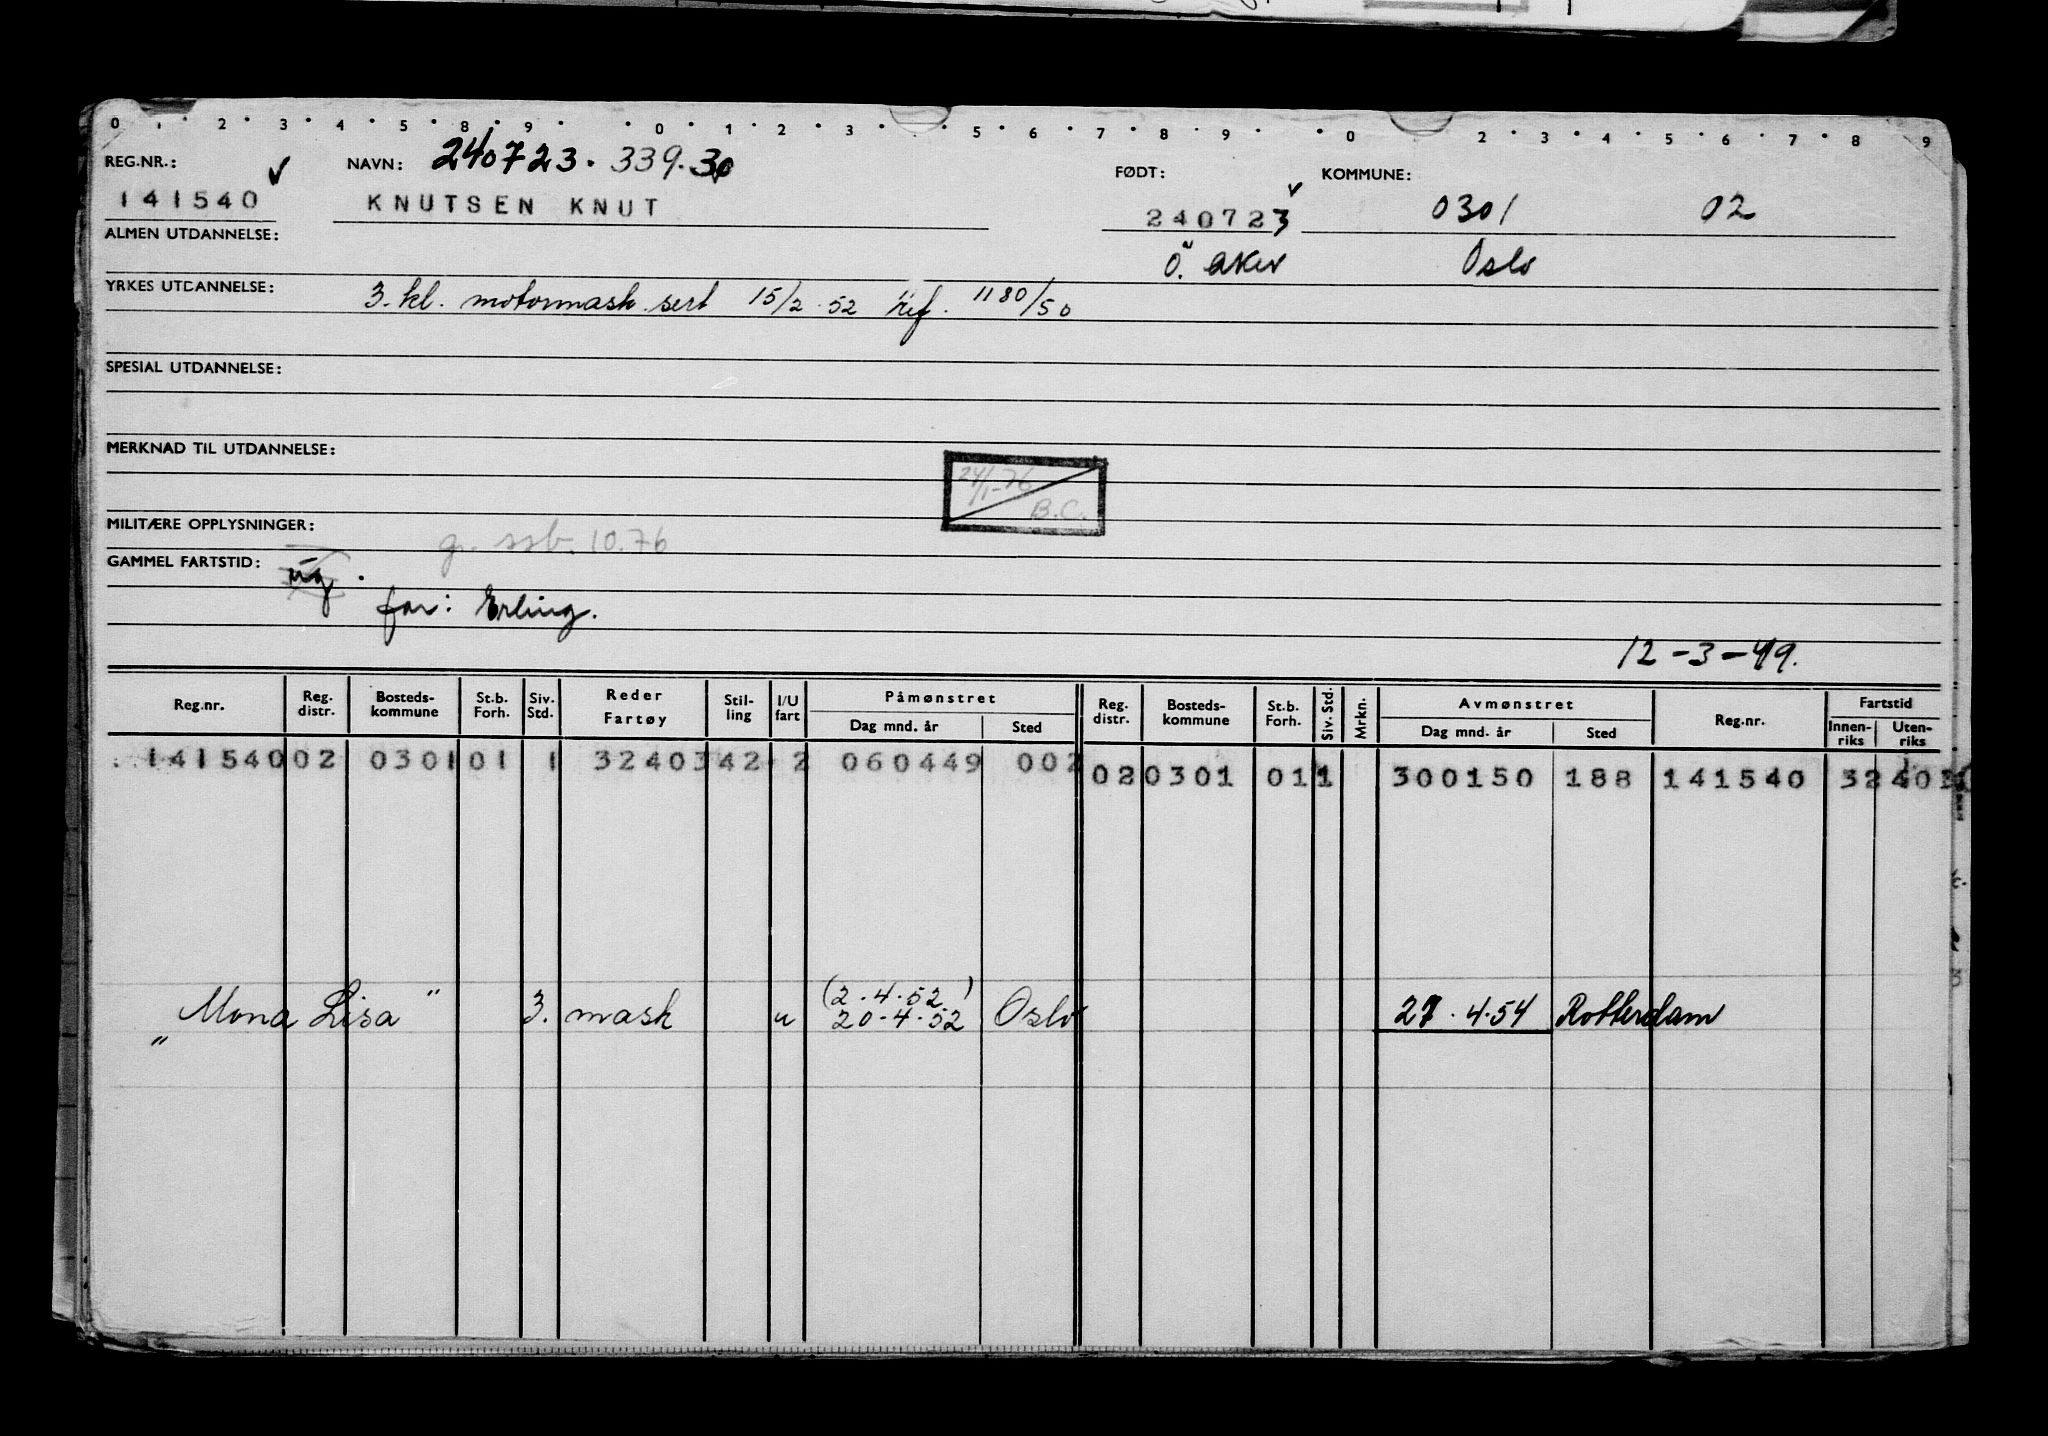 0 1 2 3 4 5 8 9 0 1 2 3 5 6 7 8 9 0 2 3 4 5 6 7 8 9
REG.NR.: NAVN: 240723. 339.30 FØDT: KOMMUNE:
141540 KNUTSEN KNUT 240723 0301 02
ALMEN UTDANNELSE: Ö. aker Oslo
YRKES UTDANNELSE: 3. kl. motormask. sert 15/2.52 1180/50
SPESIAL UTDANNELSE:
MERKNAD TIL UTDANNELSE:
24/1-76
B.C.
MILITÆRE OPPLYSNINGER: ssb. 10.76
GAMMEL FARTSTID:
far: Erling.
12-3-49.
Reg.nr. Reg. distr. Bosteds-kommune St.b. Forh. Siv. Std. Reder Fartøy Stil-ling I/U fart Påmønstret Dag mnd. år Sted Reg. distr. Bosteds-kommune St.b. Forh. Siv. Std. Mrkn. Avmønstret Dag mnd. år Sted Reg.nr. Fartstid Innen-riks Uten-riks
141540 02 0301 01 1 32403 42 2 060449 002 02 0301 01 1 300150 188 141540 32 403
(2.4.52)
"Mona Lisa" 3. mask u 20-4-52 Oslo 27.4.54 Rotterdam